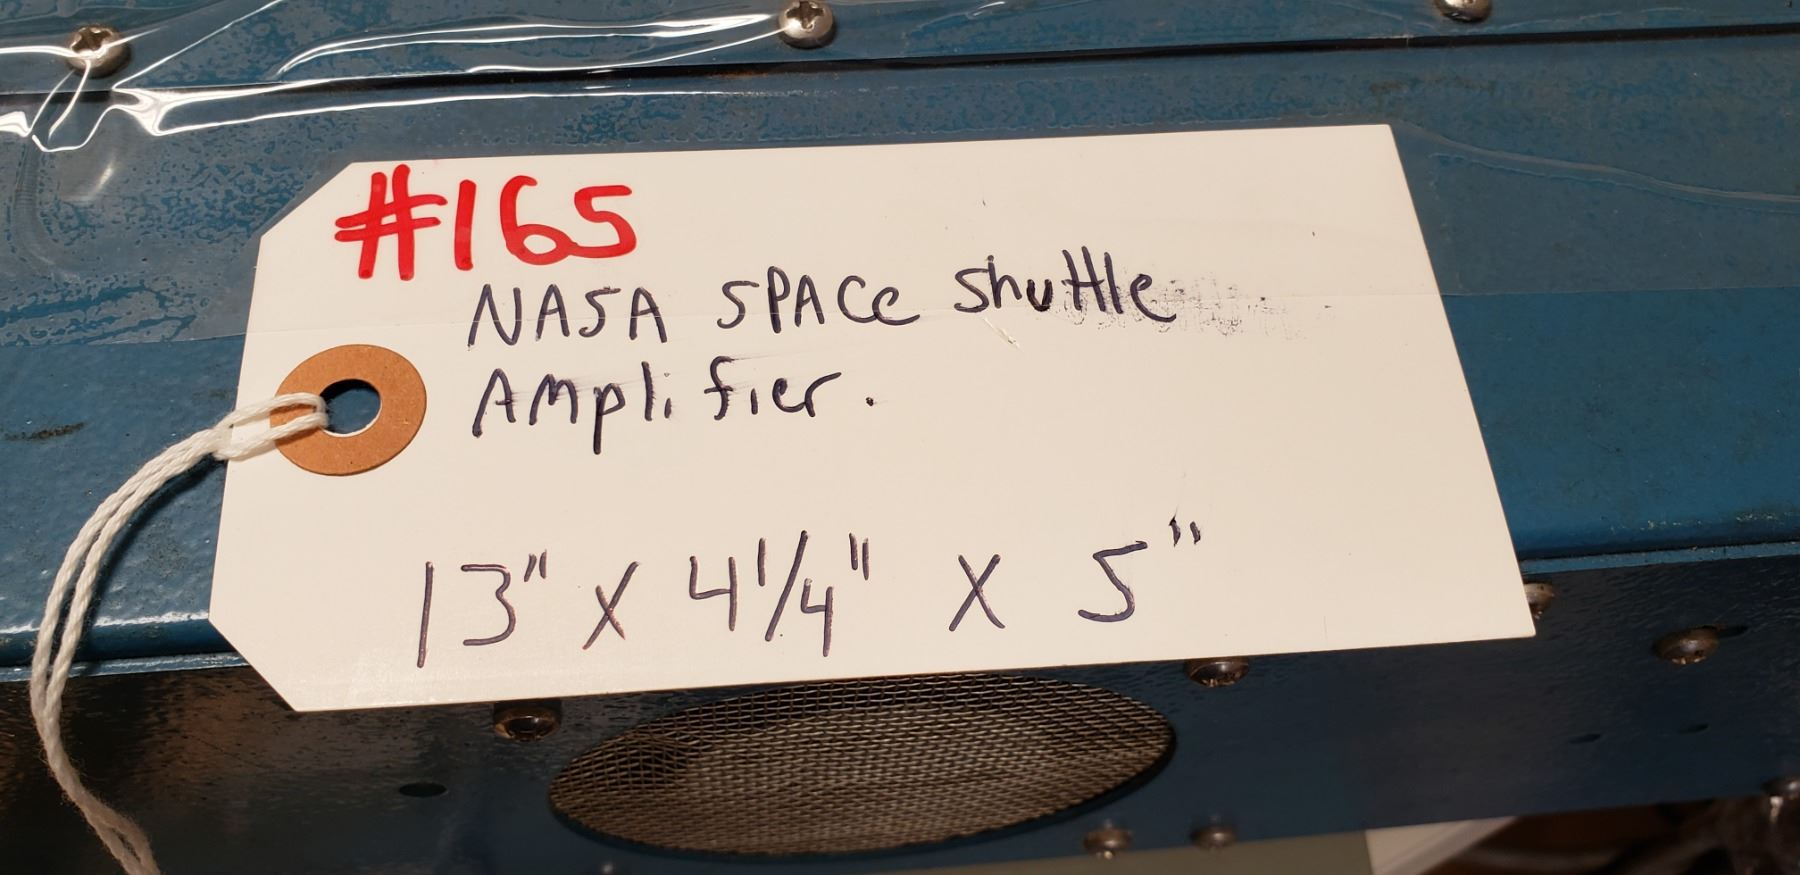 #165
NASA SPACe Shuttle
AMplifier.
13" X 4 1/4" X 5"